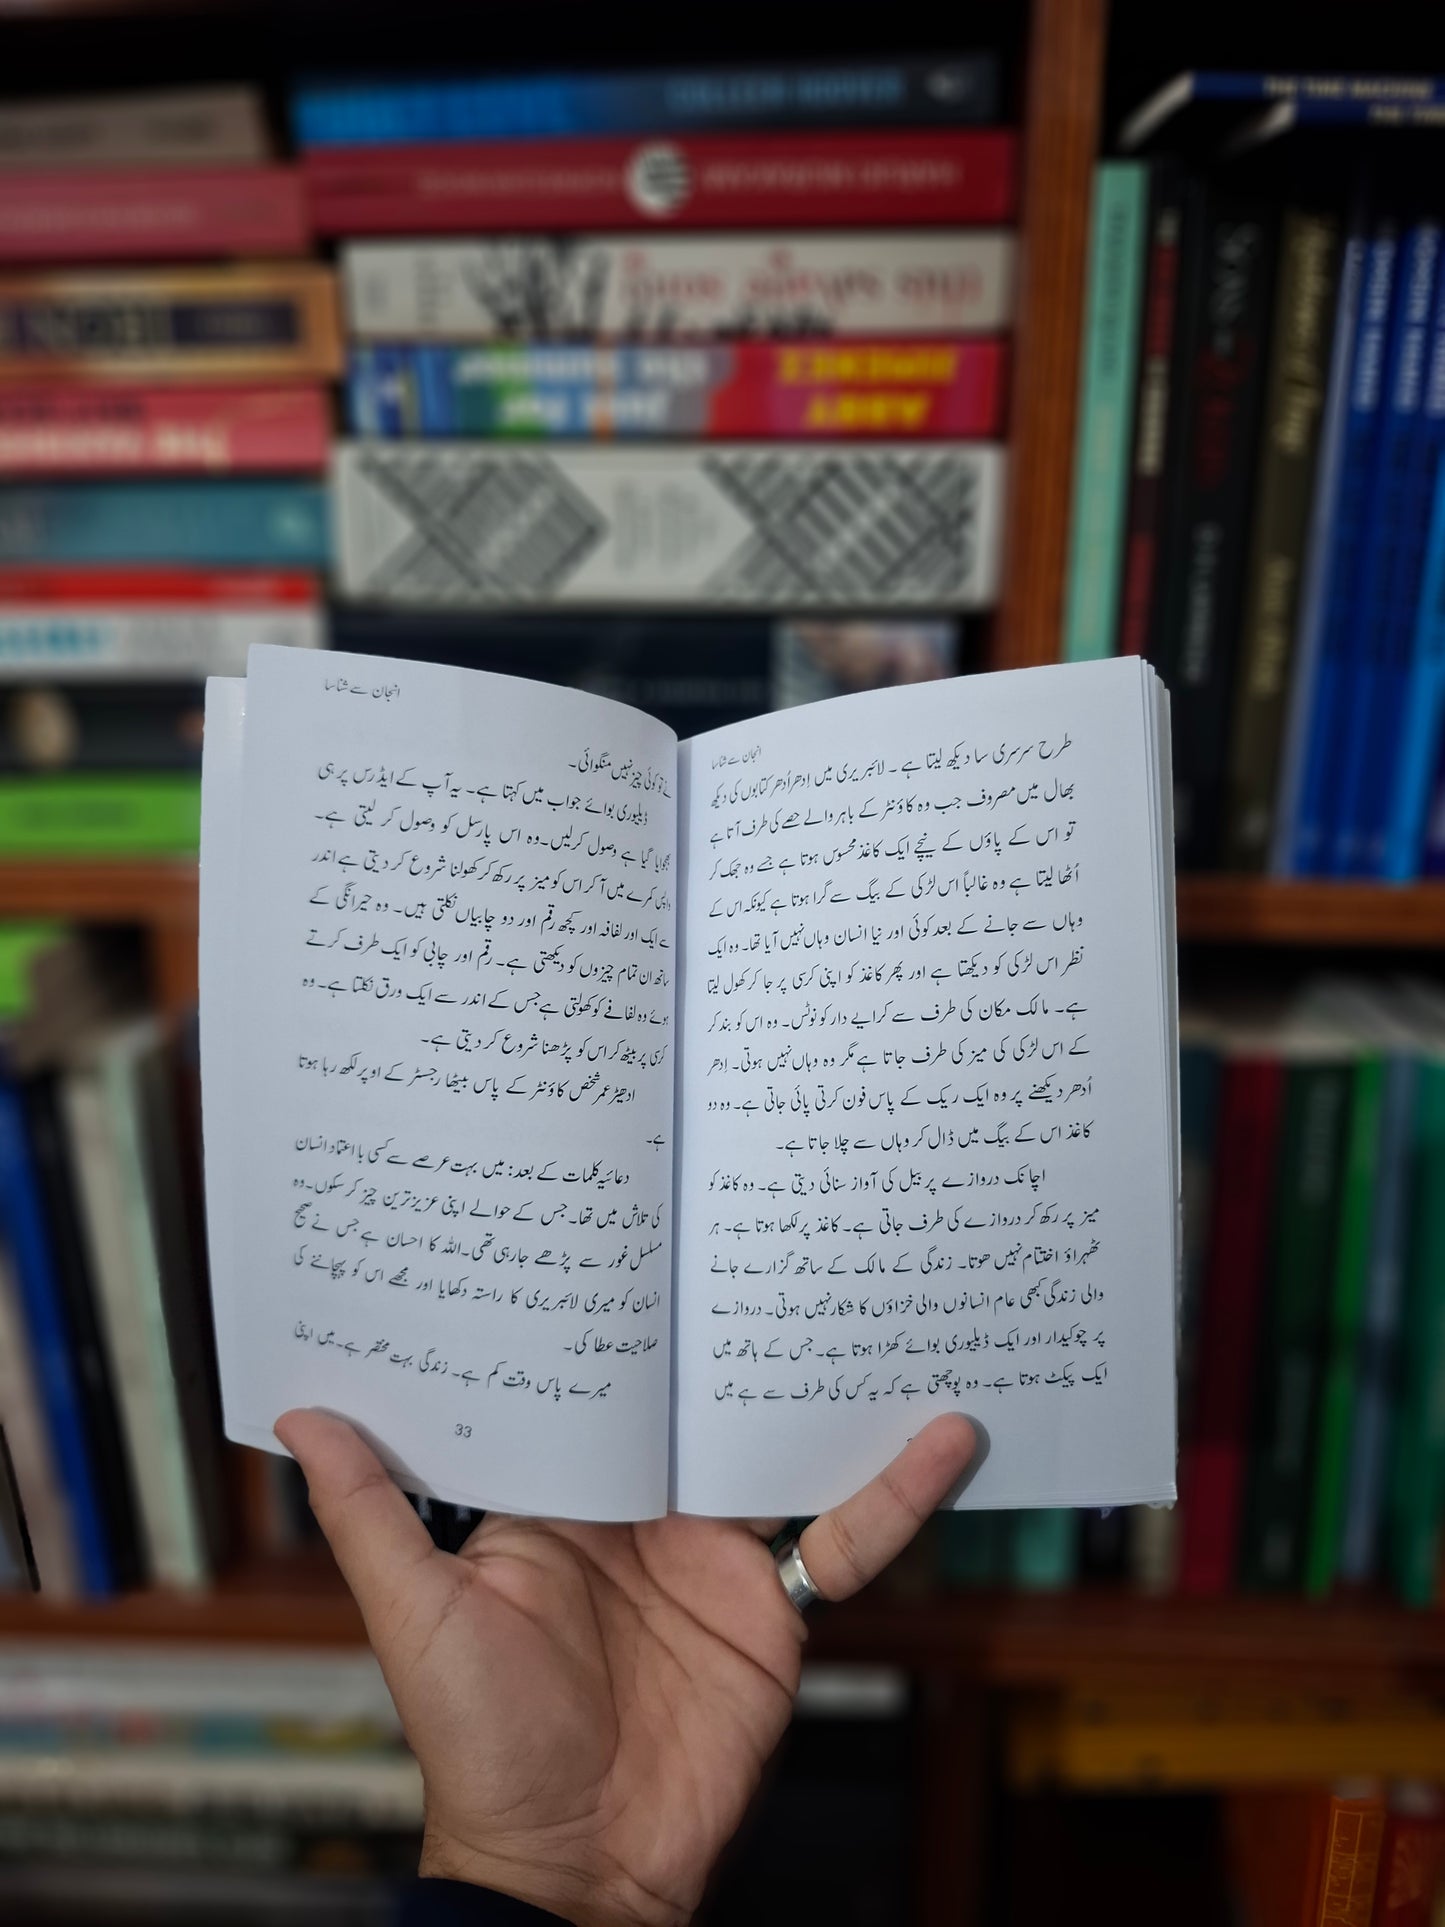 انجان سے شناسا
طرح سرسری سا دیکھ لیتا ہے ۔ لائبریری میں اِدھر اُدھر کتابوں کی دیکھ
بھال میں مصروف جب وہ کاؤنٹر کے باہر والے حصے کی طرف آتا ہے
تو اس کے پاؤں کے نیچے ایک کاغذ محسوس ہوتا ہے جسے وہ جھک کر
اُٹھا لیتا ہے وہ غالباً اس لڑکی کے بیگ سے گرا ہوتا ہے کیونکہ اس کے
وہاں سے جانے کے بعد کوئی اور نیا انسان وہاں نہیں آیا تھا۔ وہ ایک
نظر اس لڑکی کو دیکھتا ہے اور پھر کاغذ کو اپنی کرسی پر جا کر کھول لیتا
ہے۔ مالک مکان کی طرف سے کرایے دار کو نوٹس۔ وہ اس کو بند کر
کے اس لڑکی کی میز کی طرف جاتا ہے مگر وہ وہاں نہیں ہوتی۔ اِدھر
اُدھر دیکھنے پر وہ ایک ریک کے پاس فون کرتی پائی جاتی ہے۔ وہ دو
کاغذ اس کے بیگ میں ڈال کر وہاں سے چلا جاتا ہے۔
اچانک دروازے پر بیل کی آواز سنائی دیتی ہے۔ وہ کاغذ کو
میز پر رکھ کر دروازے کی طرف جاتی ہے۔ کاغذ پر لکھا ہوتا ہے۔ ہر
ٹھہراؤ اختتام نہیں ھوتا۔ زندگی کے مالک کے ساتھ گزارے جانے
والی زندگی کبھی عام انسانوں والی خزاؤں کا شکار نہیں ہوتی۔ دروازے
پر چوکیدار اور ایک ڈیلیوری بوائے کھڑا ہوتا ہے۔ جس کے ہاتھ میں
ایک پیکٹ ہوتا ہے۔ وہ پوچھتی ہے کہ یہ کس کی طرف سے ہے میں
انجان سے شناسا
نے تو کوئی چیز نہیں منگوائی۔
ڈیلیوری بوائے جواب میں کہتا ہے۔ یہ آپ کے ایڈرس پر ہی
بھجوایا گیا ہے وصول کرلیں۔ وہ اس پارسل کو وصول کر لیتی ہے۔
واپس کمرے میں آ کر اس کو میز پر رکھ کر کھولنا شروع کر دیتی ہے اندر
سے ایک اور لفافہ اور کچھ رقم اور دو چابیاں نکلتی ہیں۔ وہ حیرانگی کے
ساتھ ان تمام چیزوں کو دیکھتی ہے۔ رقم اور چابی کو ایک طرف کرتے
ہوئے وہ لفافے کو کھولتی ہے جس کے اندر سے ایک ورق نکلتا ہے۔ وہ
کرسی پر بیٹھ کر اس کو پڑھنا شروع کر دیتی ہے۔
ادھیڑ عمر شخص کاؤنٹر کے پاس بیٹھا رجسٹر کے اوپر لکھ رہا ہوتا
ہے۔
دعائیہ کلمات کے بعد: میں بہت عرصے سے کسی با اعتماد انسان
کی تلاش میں تھا۔ جس کے حوالے اپنی عزیز ترین چیز کر سکوں۔ وہ
مسلسل غور سے پڑھے جارہی تھی۔ اللہ کا احسان ہے جس نے صحیح
انسان کو میری لائبریری کا راستہ دکھایا اور مجھے اس کو پہچاننے کی
صلاحیت عطا کی۔
میرے پاس وقت کم ہے۔ زندگی بہت مختصر ہے۔ میں اپنی
33
ABBY
JIMENEZ
THE TIME MACHINE